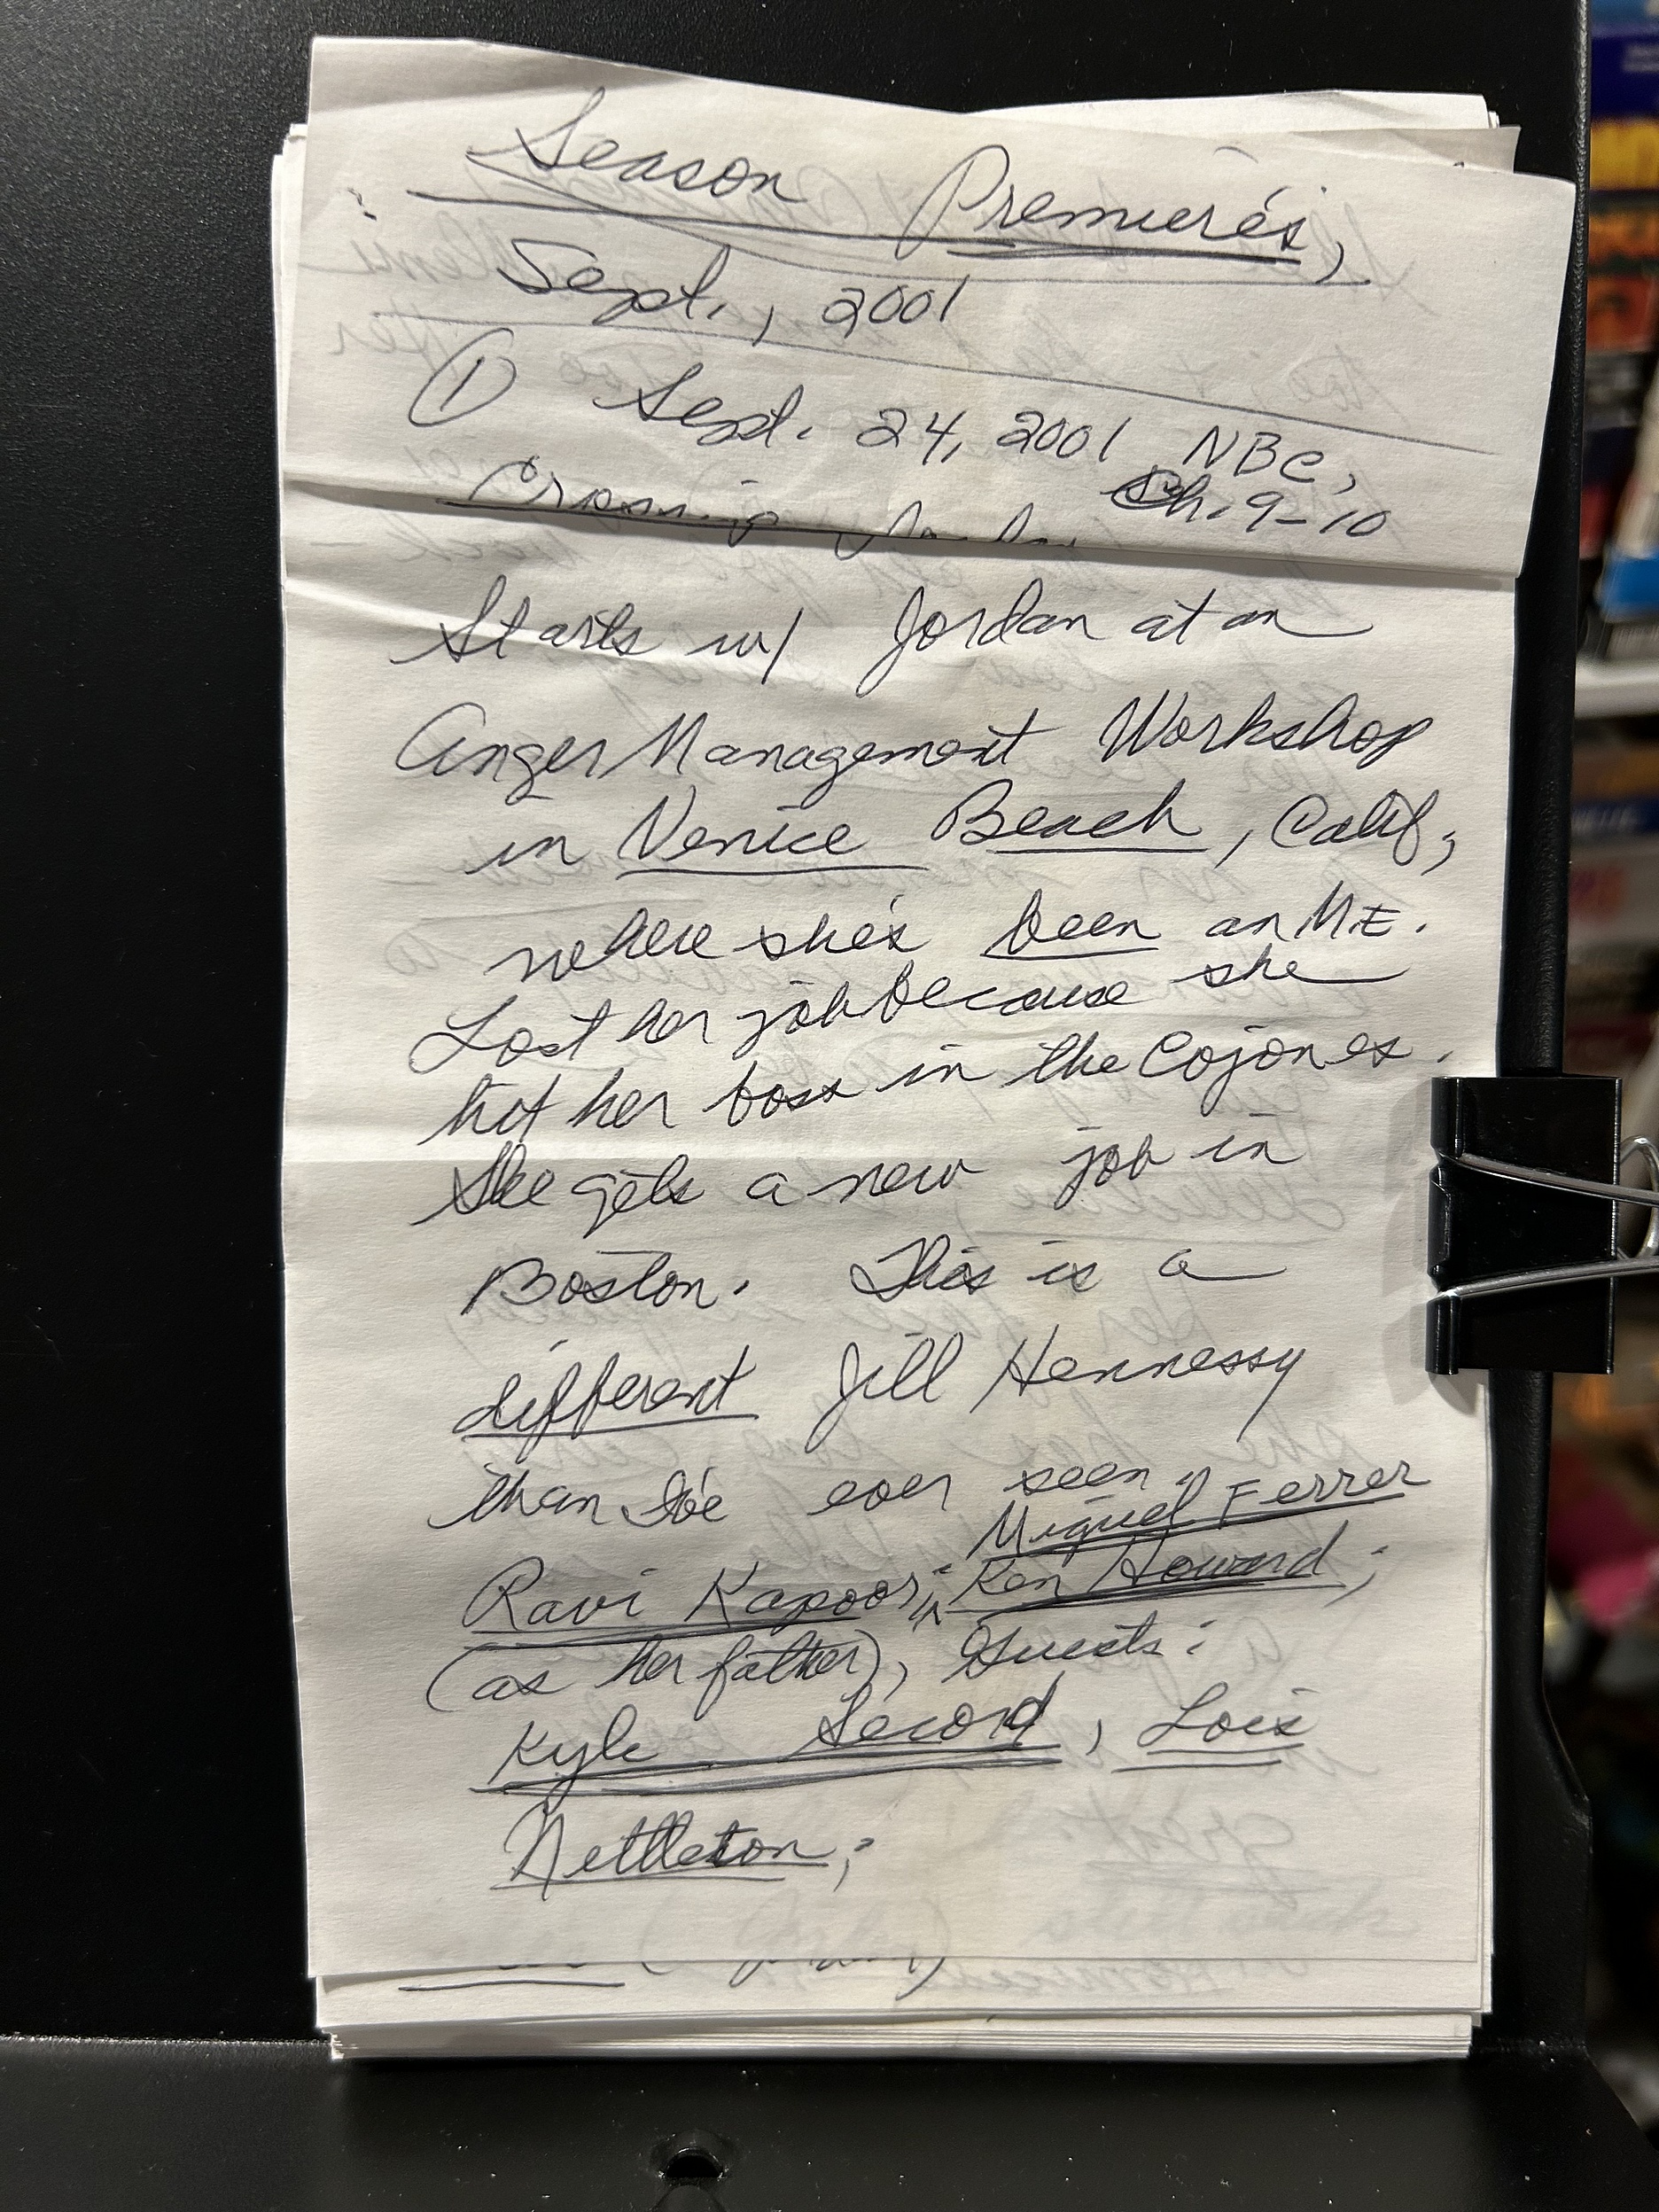 Season Premieres,
Sept., 2001
① Sept. 24, 2001 NBC,
Ch. 9-10
Crossing Jordan
Starts w/ Jordan at an
Anger Management Workshop
in Venice Beach, Calif,
where she's been an M.E.
Lost her job because she
hit her boss in the Cojones.
She gets a new job in
Boston. This is a
different Jill Hennessy
than I've ever seen.
Miguel Ferrer
Ravi Kapoor; Ken Howard;
(as her father), Guests:
Kyle Secord, Lois
Nettleton;